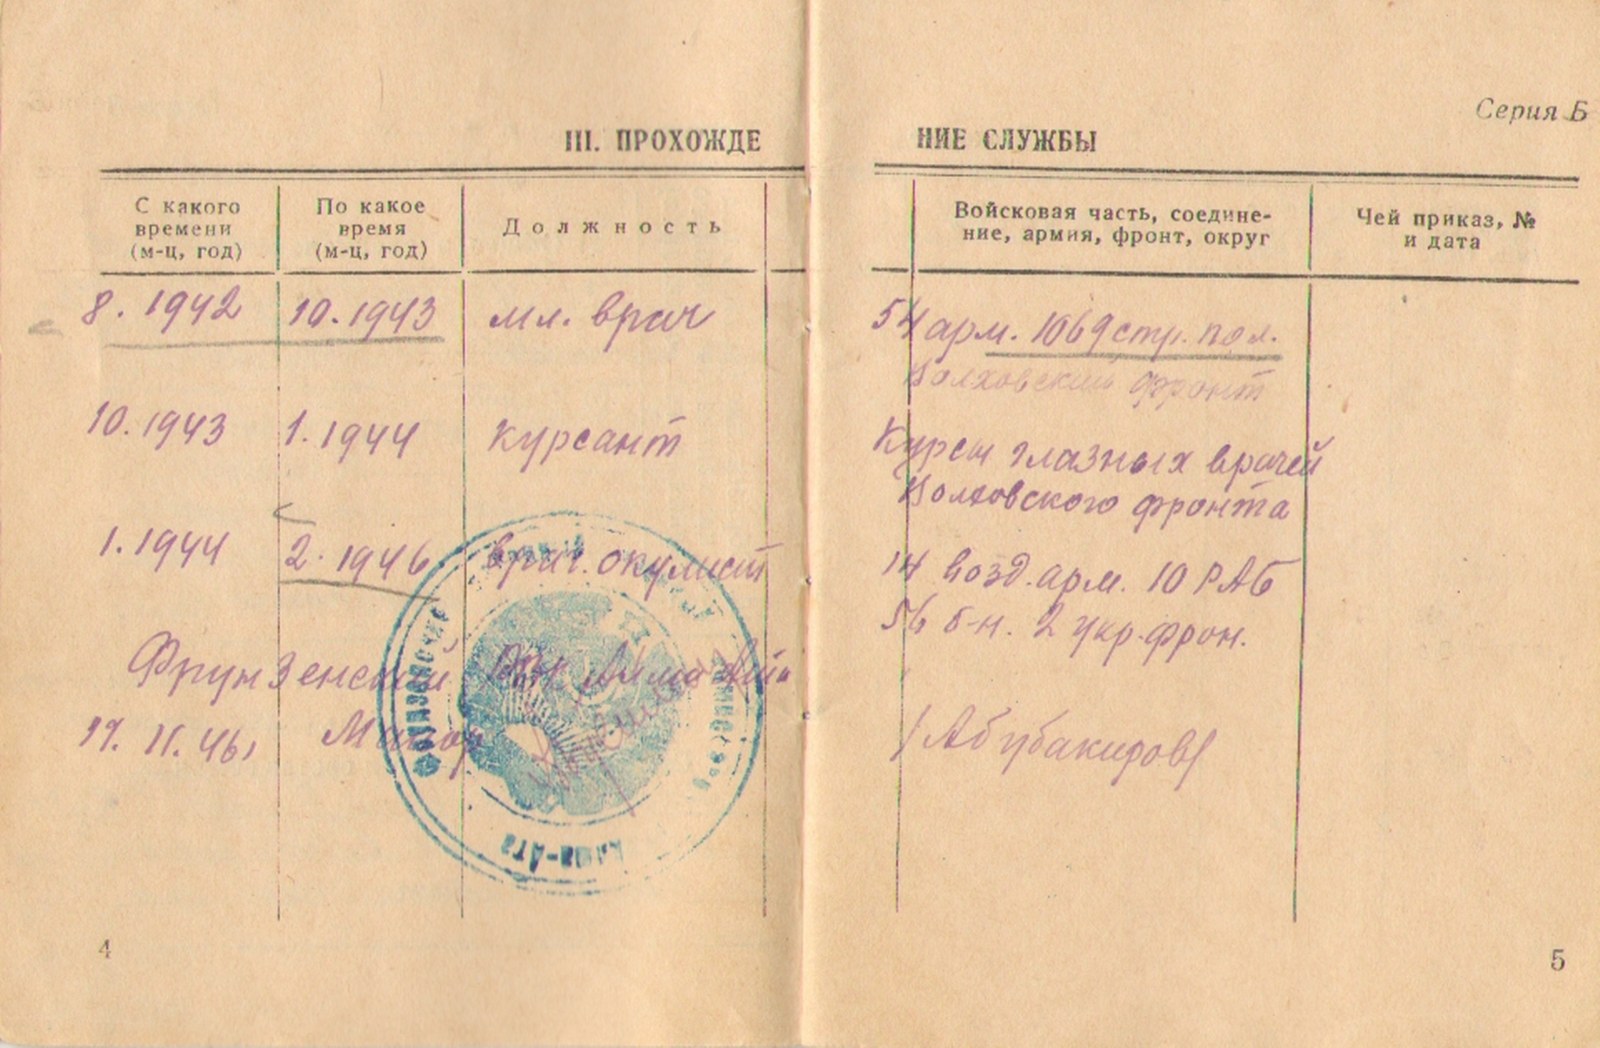 Серия Б
III. ПРОХОЖДЕ
НИЕ СЛУЖБЫ
С какого
времени
(м-ц, год)
По какое
время
(м-ц, год)
Должность
Войсковая часть, соедине-
ние, армия, фронт, округ
Чей приказ, №
и дата
8. 1942 10. 1943 мл. врач 54 арм. 1069 стр. пол.
Волховский фронт
10. 1943 1. 1944 курсант Курсы глазных врачей
Волховского фронта
1. 1944 2. 1946 врач. окулист 14 возд. арм. 10 РАБ
56 б-н. 2 укр. фрон.
Фрунзенский Алма-Ата
46 Майор /Абубакиров/
Алма-Ата
4
5